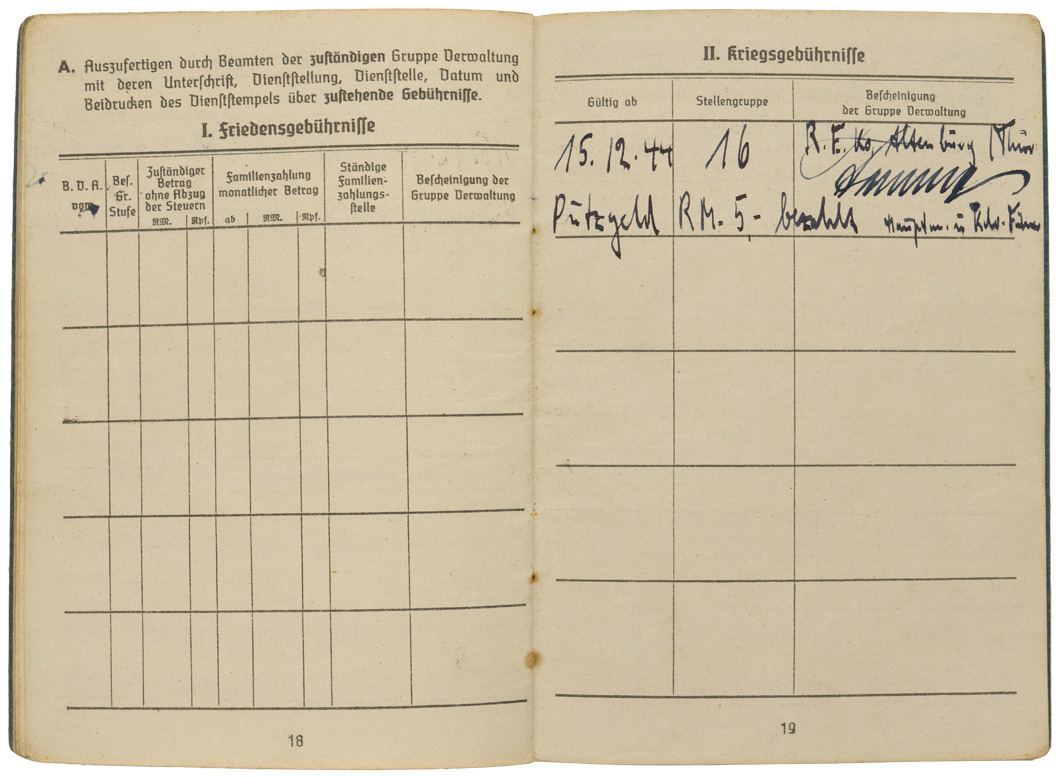 A. Auszufertigen durch Beamten der zuständigen Gruppe Verwaltung
mit deren Unterschrift, Dienststellung, Dienststelle, Datum und
Beidrucken des Dienststempels über zustehende Gebührnisse.
I. Friedensgebührnisse
B. D. A.
vom
Bes.
Gr.
Stufe
Zuständiger
Betrag
ohne Abzug
der Steuern
RM. Rpf.
Familienzahlung
monatlicher Betrag
ab RM. Rpf.
Ständige
Familien-
zahlungs-
stelle
Bescheinigung der
Gruppe Verwaltung
18
II. Kriegsgebührnisse
Gültig ab
Stellengruppe
Bescheinigung
der Gruppe Verwaltung
15.12.44 16 Altenburg
Putzgeld RM. 5,- bezahlt Hauptm. u.
19